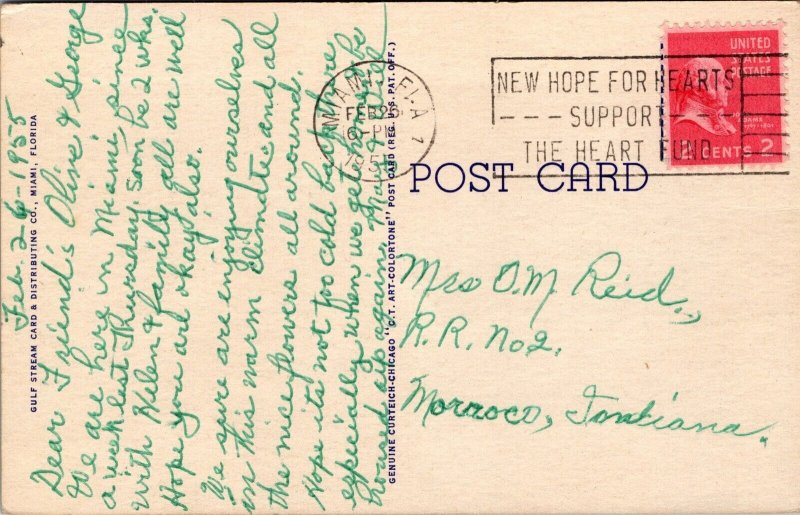 Feb. 26-1955
Dear Friend's Olive & George
We are here in Miami since
a week last Thursday. soon be 2 wks.
with Helen & family all are well
Hope you are okay also.
We sure are enjoying ourselves
in this warm climate and all
the nice flowers all around.
Hope its not too cold back there
especially when we get home be
housed up again.
GULF STREAM CARD & DISTRIBUTING CO., MIAMI, FLORIDA
GENUINE CURTEICH-CHICAGO "C.T. ART-COLORTONE" POST CARD (REG. U.S. PAT. OFF.)
MIAMI, FLA. 1
FEB 26
PM
1955
NEW HOPE FOR HEARTS
--- SUPPORT ---
THE HEART FUND
UNITED
STATES
POSTAGE
2 CENTS 2
POST CARD
Mrs O.M. Reid.,
R.R. No2.
Morroco, Indiana.